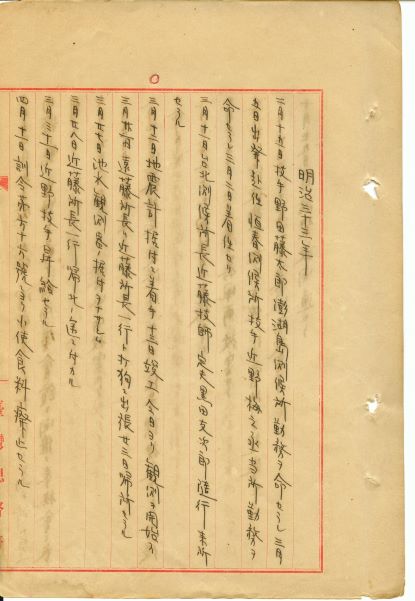 明治三十三年
二月十五日技手野田藤太郎澎湖島測候所勤務ヲ命セラレ三月
五日出発赴任恒春測候所技手近野 当所勤務ヲ
命セラレ三月二日着任セリ
三月十一日台北測候所長近藤技師定夫黒田友次郎随行来所
セラル
三月十二日地震計据付ニ着手十三日竣工今日ヨリ観測ヲ開始ス
三月廿一日遠藤所長近藤所長一行ト打狗ニ出張廿三日帰所セラル
三月廿七日池水観測器ノ据付ヲナセリ
三月廿八日近藤所長一行帰北ノ途ニ付カル
三月三十一日近野技手昇給セラル
四月十一日訓令第六十六号ニヨリ小使食料廃止セラル